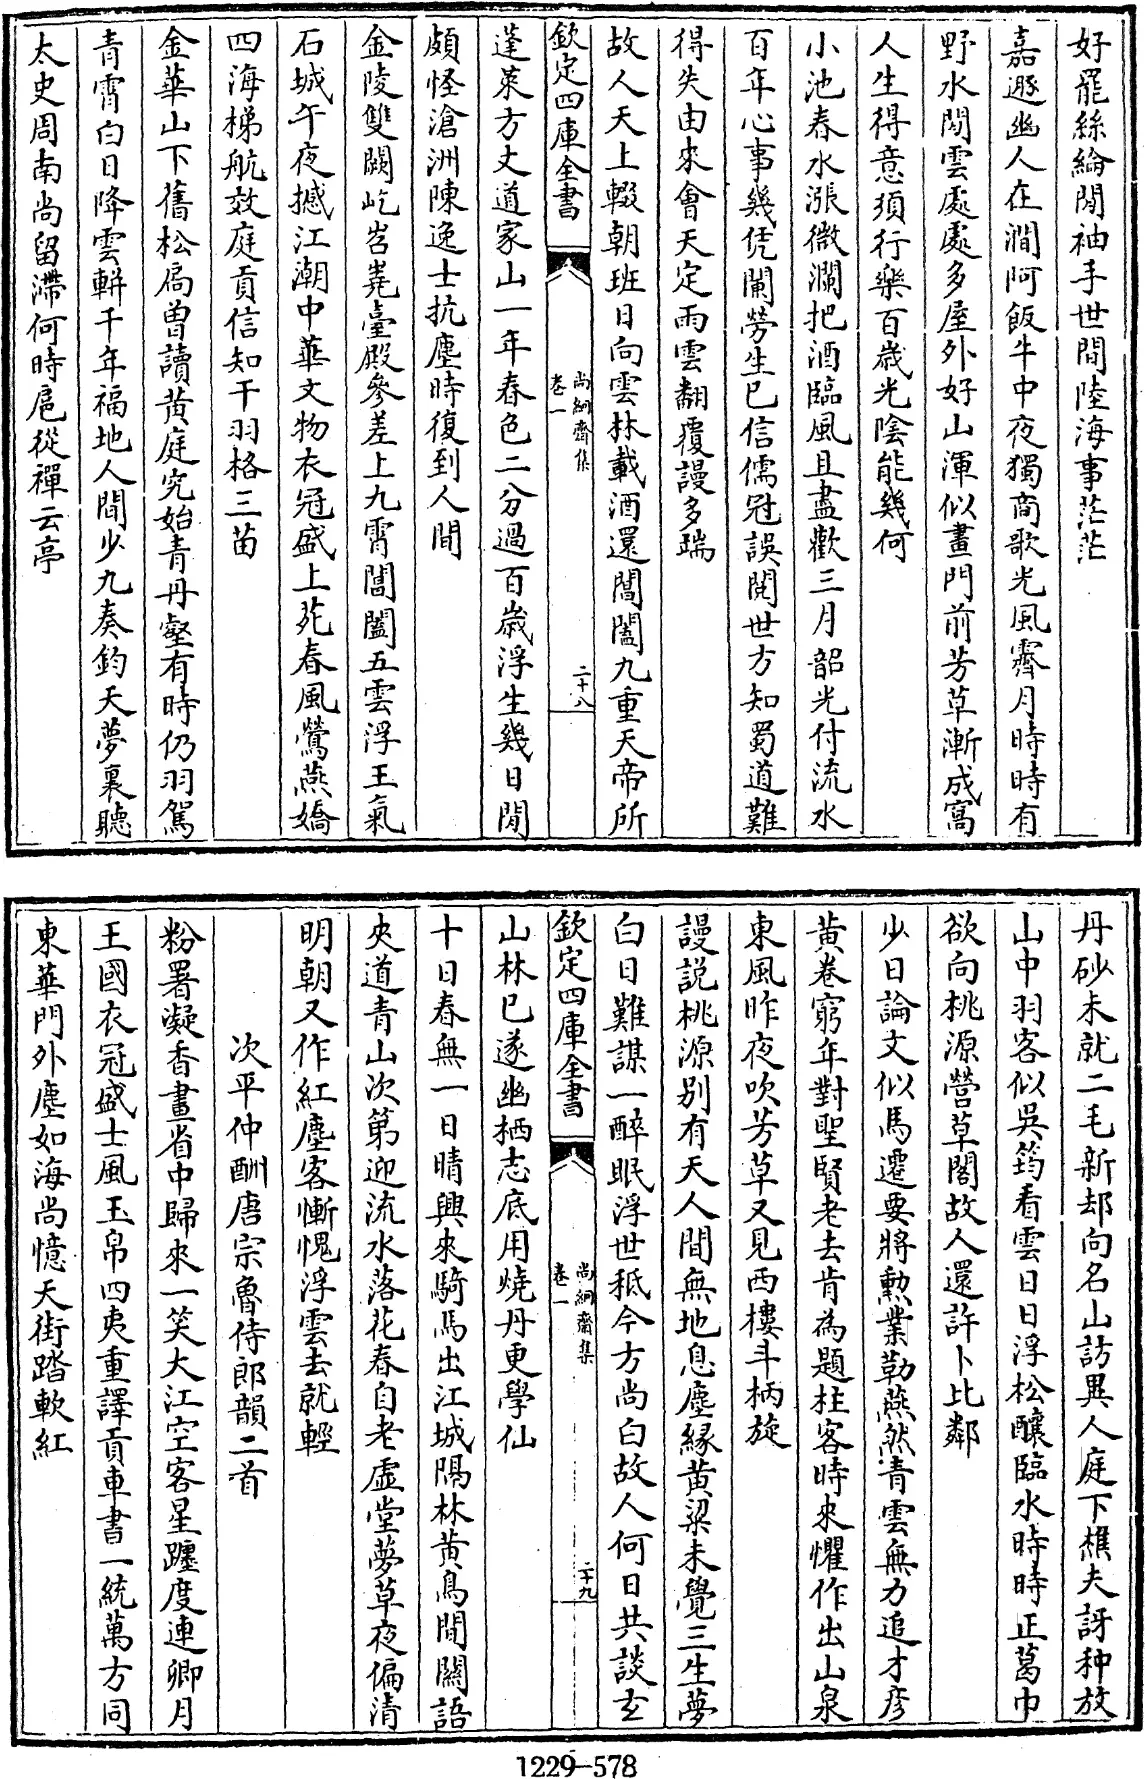 好罷絲綸閒袖手世間陸海事茫茫
嘉遯幽人在澗阿飯牛中夜獨商歌光風霽月時時有
野水閒雲處處多屋外好山渾似畫門前芳草漸成窩
人生得意須行樂百歲光陰能幾何
小池春水漲微瀾把酒臨風且盡歡三月韶光付流水
百年心事幾凭闌勞生已信儒冠誤閱世方知蜀道難
得失由來會天定雨雲翻覆謾多端
故人天上輟朝班日向雲林載酒還閶闔九重天帝所
欽定四庫全書
尚絅齋集
卷一
二十八
蓬萊方丈道家山一年春色二分過百歲浮生幾日閒
頗怪滄洲陳逸士抗塵時復到人間
金陵雙闕屹岧嶤臺殿參差上九霄閶闔五雲浮王氣
石城午夜撼江潮中華文物衣冠盛上苑春風鶯燕嬌
四海梯航效庭貢信知干羽格三苗
金華山下舊松扃曾讀黄庭究始青丹壑有時仍羽駕
青霄白日降雲軿千年福地人間少九奏鈞天夢裏聽
太史周南尚留滯何時扈從禪云亭
丹砂未就二毛新却向名山訪異人庭下樵夫訝种放
山中羽客似吳筠看雲日日浮松釀臨水時時正葛巾
欲向桃源營草閣故人還許卜比鄰
少日論文似馬遷要將勲業勒燕然青雲無力追才彦
黄卷窮年對聖賢老去肯為題柱客時來懼作出山泉
東風昨夜吹芳草又見西樓斗柄旋
謾説桃源别有天人間無地息塵縁黄粱未覺三生夢
白日難謀一醉眠浮世秪今方尚白故人何日共談玄
欽定四庫全書
尚絅齋集
卷一
二十九
山林已遂幽栖志底用燒丹更學仙
十日春無一日晴興來騎馬出江城隔林黄鳥間關語
夾道青山次第迎流水落花春自老虚堂夢草夜偏清
明朝又作紅塵客慚愧浮雲去就輕
次平仲酬唐宗魯侍郎韻二首
粉署凝香畫省中歸來一笑大江空客星躔度連卿月
王國衣冠盛士風玉帛四夷重譯貢車書一統萬方同
東華門外塵如海尚憶天街踏軟紅
1229-578